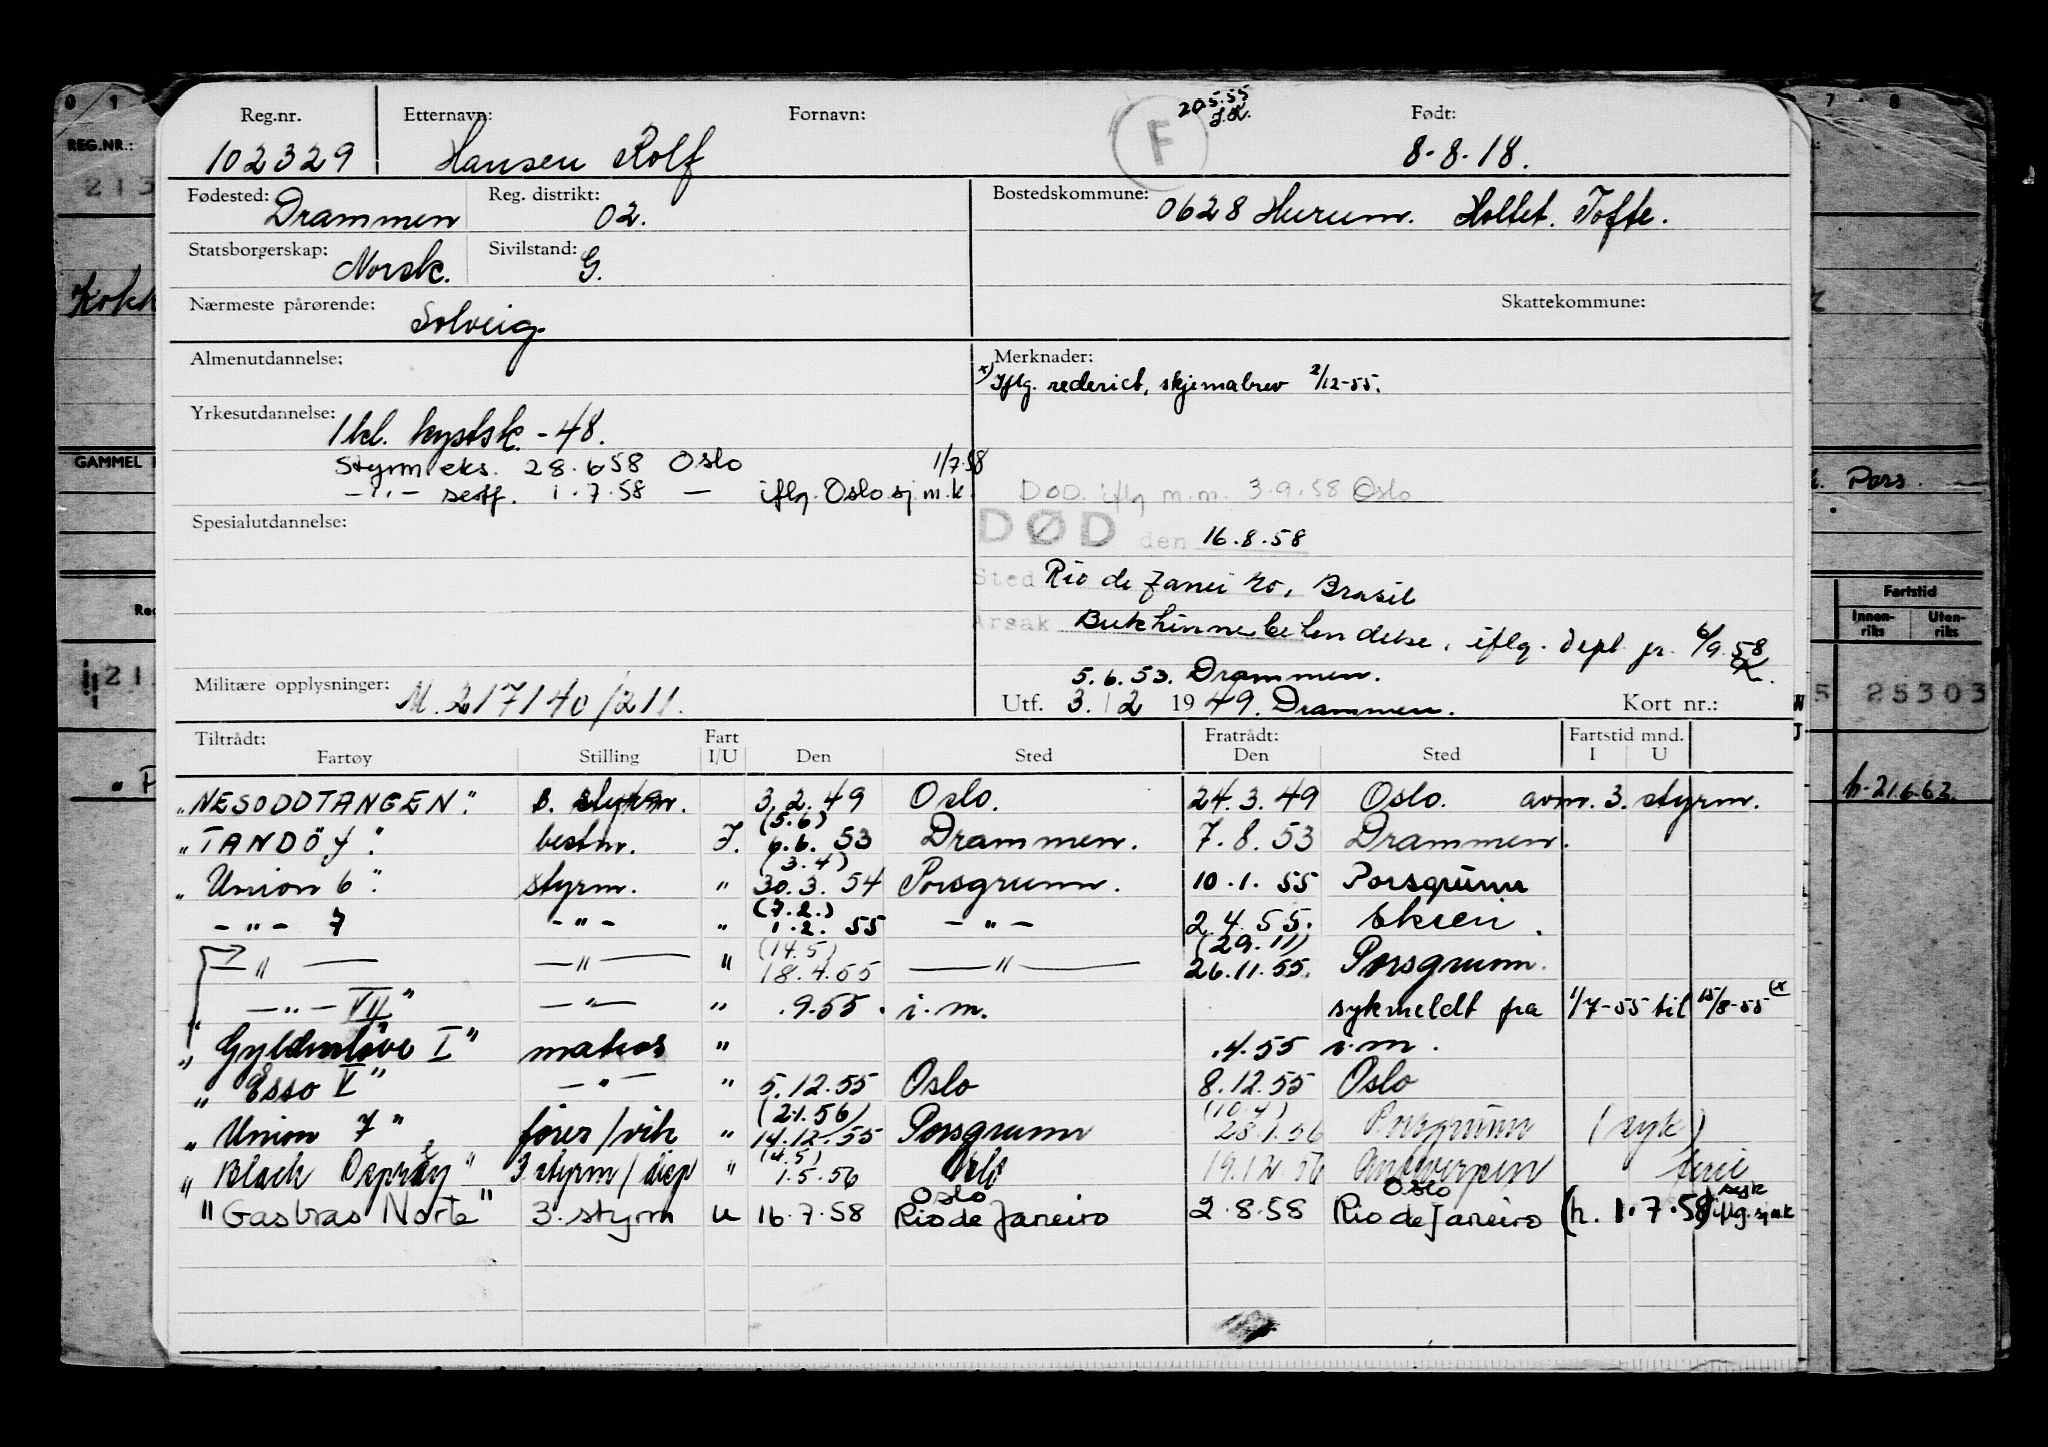 Reg.nr. Etternavn: Fornavn: F 20.5.55 Født:
102329 Hansen Rolf 8.8.18.
Fødested: Drammen Reg. distrikt: 02. Bostedskommune: 0628 Hurum. Holtet. Tofte.
Statsborgerskap: Norsk. Sivilstand: G.
Nærmeste pårørende: Solveig. Skattekommune:
Almenutdannelse: Merknader:
x) Iflg. rederiet, skjemabrev 2/12-55.
Yrkesutdannelse: 1 kl. kystsk. -48.
Styrm. eks. 28.6.58 Oslo 1/7.58
-"- sertf. 1.7.58 — iflg. Oslo sj.m.k.
DØD. iflg m.m. 3.9.58 Oslo
Spesialutdannelse:
DØD den 16.8.58
Sted Rio de Janeiro, Brasil
Årsak Bukhinnebetendelse, iflg. Dept. jr. 6/9.58
5.6.53. Drammen.
Militære opplysninger: M. 217140/211. Utf. 3/2 1949. Drammen. Kort nr.:
Tiltrådt: Fart Fratrådt: Fartstid mnd.
Fartøy Stilling I/U Den Sted Den Sted I U
"NESODDTANGEN". 3.2.49 Oslo. 24.3.49 Oslo. avm. 3. styrm.
(5.6)
"TANDÖY". bestm. I. 6.6. 53 Drammen. 7.8.53 Drammen.
(3.4)
"Union 6". styrm. " 30.3.54 Porsgrunn. 10.1.55 Porsgrunn
(7.2.)
-"- 7 -"- " 1.2.55 -"- 2.4.55. Skien.
(14.5) (29.11)
—"— —"— " 18.4.55 —"— 26.11.55. Porsgrunn.
" -"- VII" -"- " .9.55. i.m. sykmeldt fra 1/7-55 til 15/8-55 (x
" Gyldenløve I" matros " .4.55 i.m.
" Esso V" -"- " 5.12.55 Oslo 8.12.55 Oslo
(2.1.56) (10.4)
" Union 7" fører/vik " 14.12.55 Porsgrunn 28.1.56 Porsgrunn (syk)
(4.5)
" Black Osprey" 3 styrm/disp " 1.5.56 Oslo 19.12.56 Antwerpen ferie
Oslo Oslo syk
"Gasbras Norte" 3. styrm u 16.7.58 Rio de Janeiro 2.8.58 Rio de Janeiro (h. 1.7.58) iflg. sj.m.k
0 1
REG.NR.:
213
Kokk
GAMMEL
121
7 8
Pers.
Fartstid
Innen-riks Uten-riks
5 25303
h. 21.6.62.